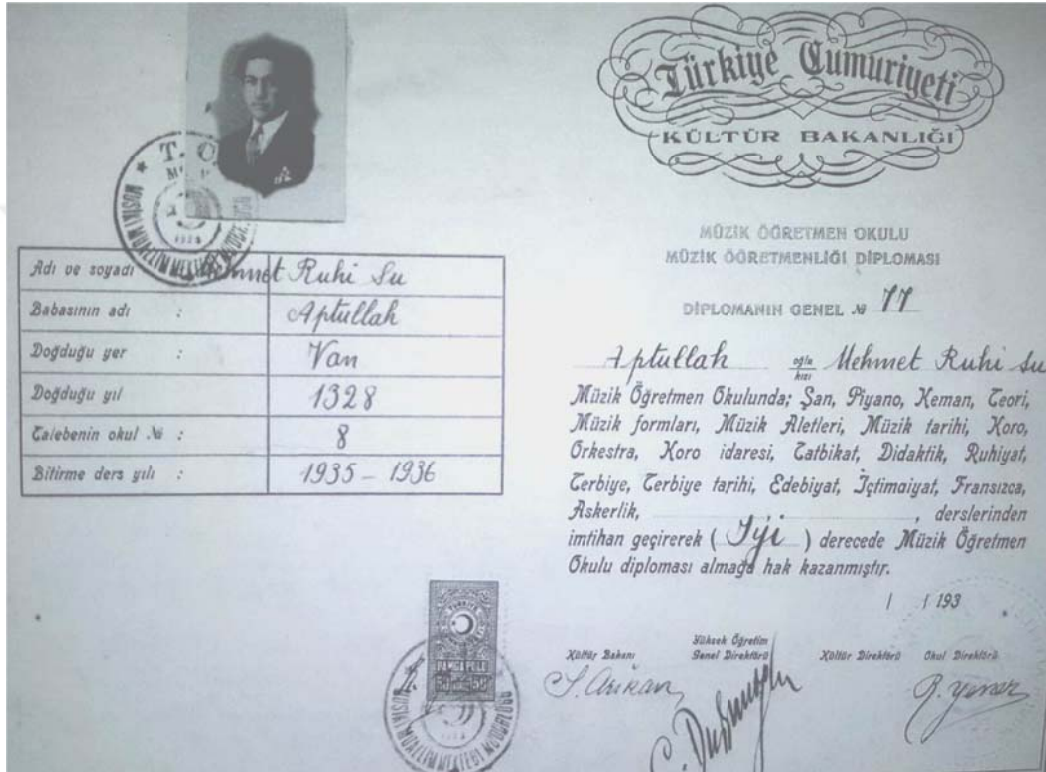 T. C.
MUSİKİ MUALLİM MEKTEBİ
Adı ve soyadı Mehmet Ruhi Su
Babasının adı : Aptullah
Doğduğu yer : Van
Doğduğu yıl 1328
Talebenin okul № : 8
Bitirme ders yılı : 1935 – 1936
Türkiye Cumuriyeti
KÜLTÜR BAKANLIĞI
MÜZİK ÖĞRETMEN OKULU
MÜZİK ÖĞRETMENLİĞİ DİPLOMASI
DİPLOMANIN GENEL № 77
Aptullah oğlu kızı Mehmet Ruhi Su
Müzik Öğretmen Okulunda; Şan, Piyano, Keman, Teori,
Müzik formları, Müzik Aletleri, Müzik tarihi, Koro,
Orkestra, Koro idaresi, Tatbikat, Didaktik, Ruhiyat,
Terbiye, Terbiye tarihi, Edebiyat, İçtimaiyat, Fransızca,
Askerlik, , derslerinden
imtihan geçirerek ( İyi ) derecede Müzik Öğretmen
Okulu diploması almağa hak kazanmıştır.
/ / 193
Kültür Bakanı Yüksek Öğretim Genel Direktörü Kültür Direktörü Okul Direktörü
S. Arıkan
DAMGA PULU
50 50
MUSİKİ MUALLİM MEKTEBİ MÜDÜRLÜĞÜ